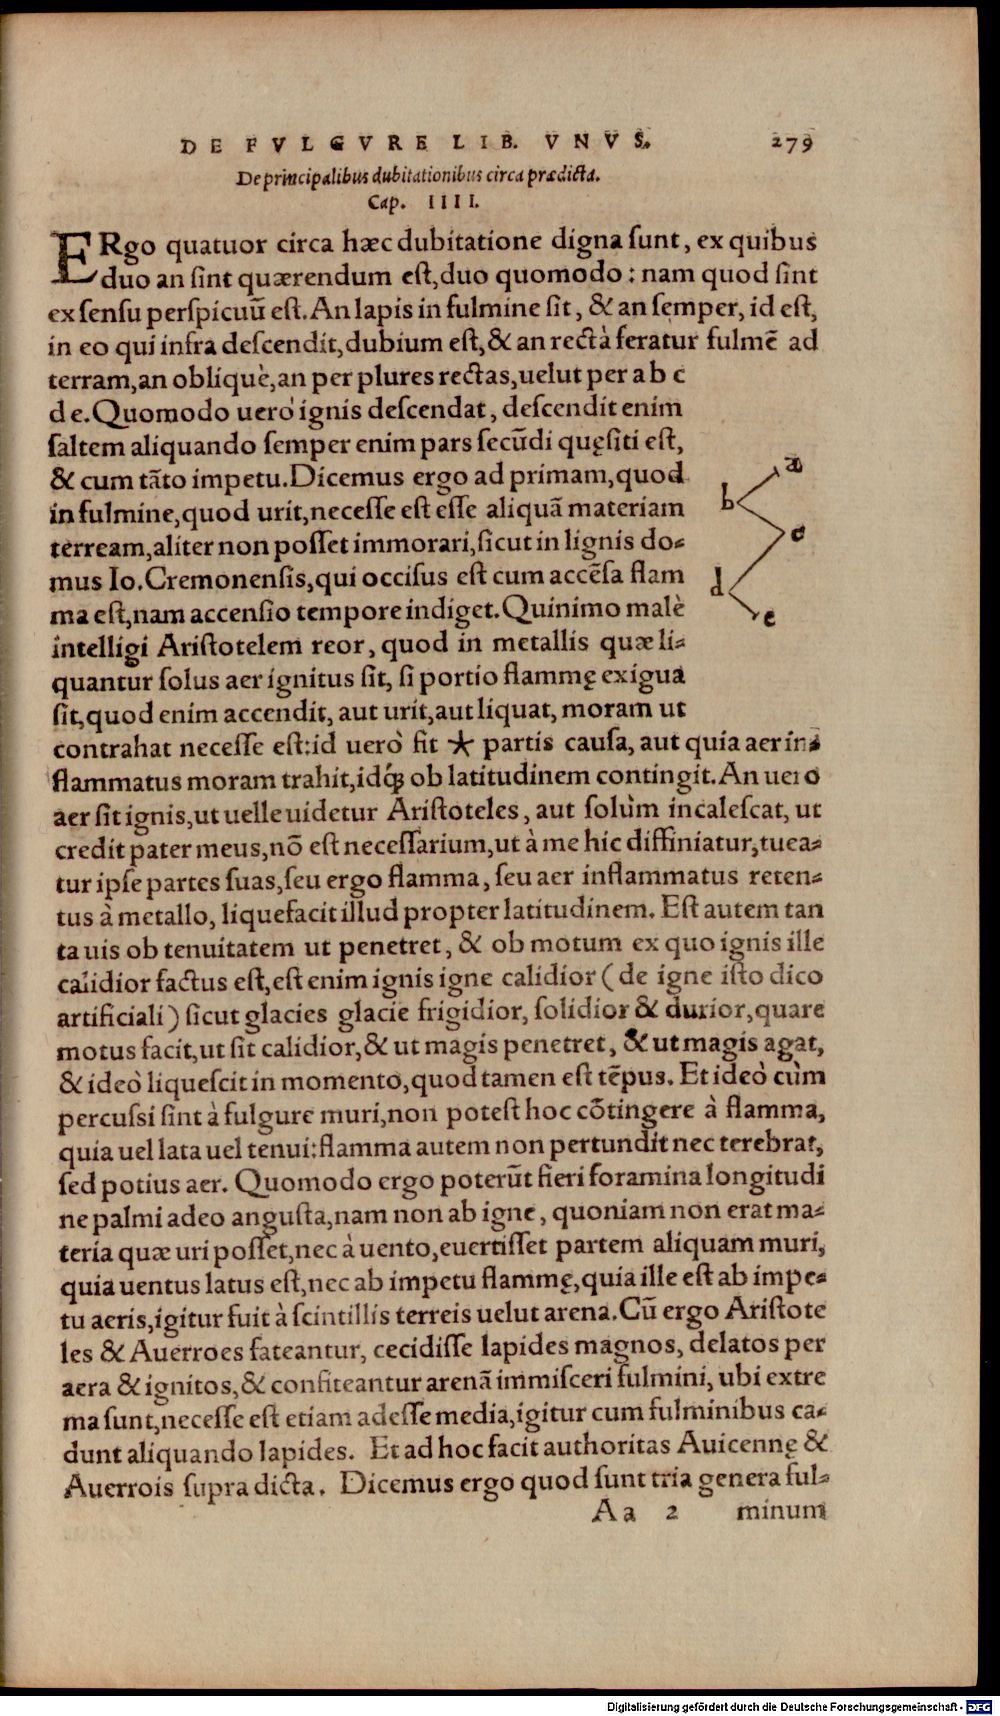 DE FVLGVRE LIB. VNVS. 279
De principalibus dubitationibus circa prædicta.
Cap. IIII.
ERgo quatuor circa hæc dubitatione digna ſunt, ex quibus
duo an ſint quærendum eſt, duo quomodo: nam quod ſint
ex ſenſu perſpicuũ eſt. An lapis in fulmine ſit, & an ſemper, id eſt,
in eo qui infra deſcendit, dubium eſt, & an rectà feratur fulmẽ ad
terram, an obliquè, an per plures rectas, uelut per a b c
d e. Quomodo uerò ignis deſcendat, deſcendit enim
ſaltem aliquando ſemper enim pars ſecũdi quęſiti eſt,
& cum tãto impetu. Dicemus ergo ad primam, quod
in fulmine, quod urit, neceſſe eſt eſſe aliquã materiam
terream, aliter non poſſet immorari, ſicut in lignis do-
mus Io. Cremonenſis, qui occiſus eſt cum accẽſa flam
ma eſt, nam accenſio tempore indiget. Quinimo malè
intelligi Ariſtotelem reor, quod in metallis quæ li-
quantur ſolus aer ignitus ſit, ſi portio flammę exigua
ſit, quod enim accendit, aut urit, aut liquat, moram ut
contrahat neceſſe eſt: id uerò fit * partis cauſa, aut quia aer in-
flammatus moram trahit, idq́ꝫ ob latitudinem contingit. An uero
aer ſit ignis, ut uelle uidetur Ariſtoteles, aut ſolùm incaleſcat, ut
credit pater meus, nõ eſt neceſſarium, ut à me hic diffiniatur, tuea-
tur ipſe partes ſuas, ſeu ergo flamma, ſeu aer inflammatus reten-
tus à metallo, liquefacit illud propter latitudinem. Eſt autem tan
ta uis ob tenuitatem ut penetret, & ob motum ex quo ignis ille
calidior factus eſt, eſt enim ignis igne calidior (de igne iſto dico
artificiali) ſicut glacies glacie frigidior, ſolidior & durior, quare
motus facit, ut ſit calidior, & ut magis penetret, & ut magis agat,
& ideò liqueſcit in momento, quod tamen eſt tẽpus. Et ideò cùm
percuſſi ſint à fulgure muri, non poteſt hoc cõtingere à flamma,
quia uel lata uel tenui: flamma autem non pertundit nec terebrat,
ſed potius aer. Quomodo ergo poterũt fieri foramina longitudi
ne palmi adeo anguſta, nam non ab igne, quoniam non erat ma-
teria quæ uri poſſet, nec à uento, euertiſſet partem aliquam muri,
quia uentus latus eſt, nec ab impetu flammę, quia ille eſt ab impe-
tu aeris, igitur fuit à ſcintillis terreis uelut arena. Cũ ergo Ariſtote
les & Auerroes fateantur, cecidiſſe lapides magnos, delatos per
aera & ignitos, & confiteantur arenã immiſceri fulmini, ubi extre
ma ſunt, neceſſe eſt etiam adeſſe media, igitur cum fulminibus ca-
dunt aliquando lapides. Et ad hoc facit authoritas Auicennę &
Auerrois ſupra dicta. Dicemus ergo quod ſunt tria genera ful-
Aa 2 minum
a
b
c
d
e
Digitalisierung gefördert durch die Deutsche Forschungsgemeinschaft - DFG